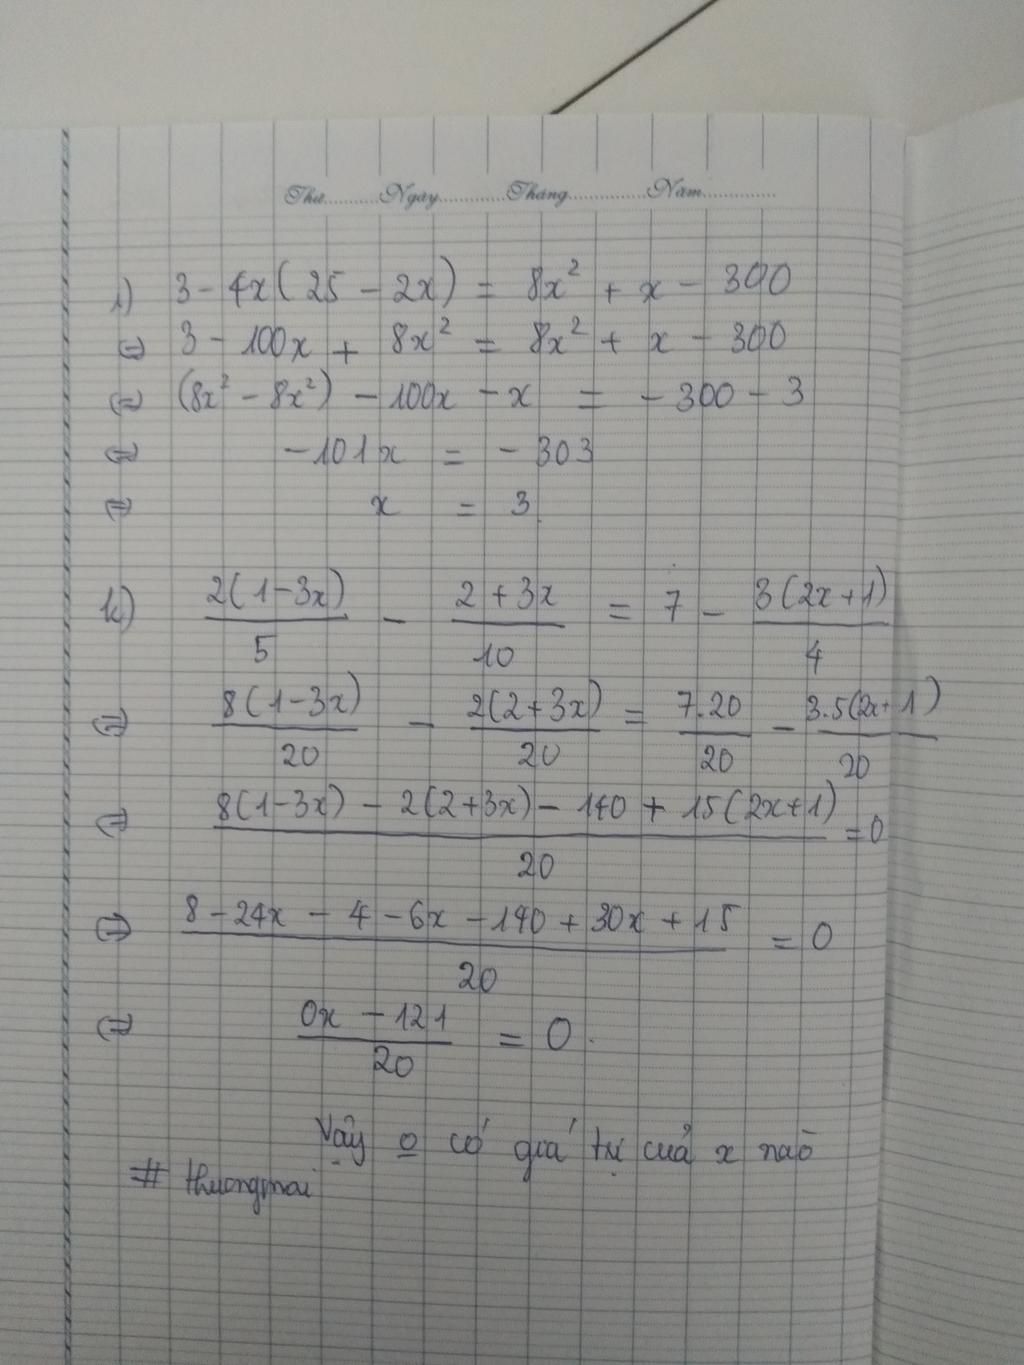 Thứ..........Ngày............Tháng..............Năm.............
i) 3 - 4x( 25 - 2x) = 8x² + x - 300
⇔ 3 - 100x + 8x² = 8x² + x - 300
⇔ (8x² - 8x²) - 100x - x = - 300 - 3
⇔ -101x = - 303
⇔ x = 3
k) 2(1-3x)/5 - 2+3x/10 = 7 - 3(2x+1)/4
⇔ 8(1-3x)/20 - 2(2+3x)/20 = 7.20/20 - 3.5(2x+1)/20
⇔ 8(1-3x) - 2(2+3x) - 140 + 15(2x+1)/20 = 0
⇔ 8 - 24x - 4 - 6x - 140 + 30x + 15/20 = 0
⇔ 0x - 121/20 = 0.
Vậy o có giá trị của x nào
# thuongmai